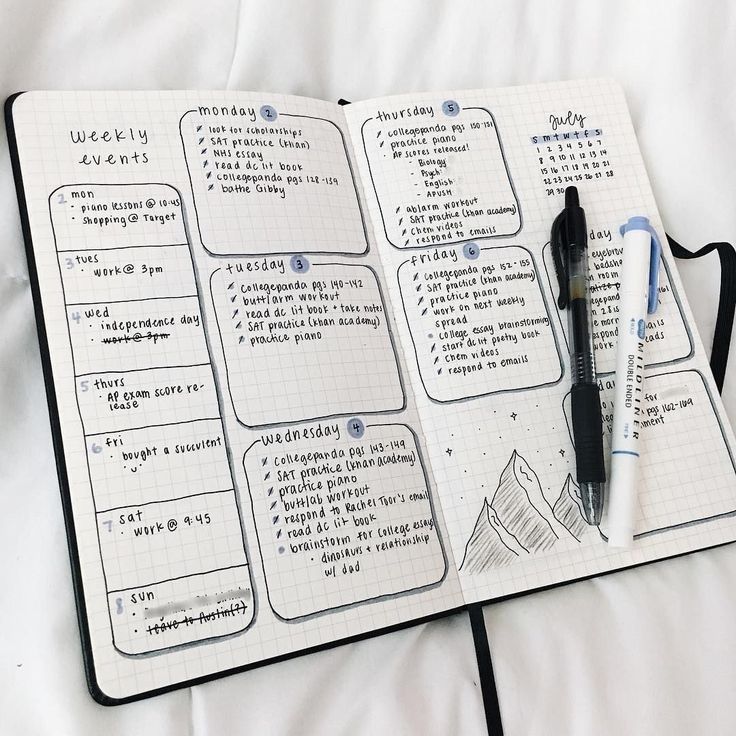 weekly
events
2 mon
• piano lessons @ 10:45
• shopping @ Target
3 tues
• work @ 3pm
4 wed
• independence day
• work @ 3pm
5 thurs
• AP exam score re-
lease
6 fri
• bought a succulent
7 sat
• work @ 9:45
8 sun
• leave to Austin(?)
monday 2
look for scholarships
SAT practice (khan)
NHS essay
read dc lit book
collegepanda pgs 128-139
bathe Gibby
tuesday 3
collegepanda pgs 140-142
butt/arm workout
read dc lit book + take notes
SAT practice (khan academy)
practice piano
wednesday 4
collegepanda pgs 143-149
SAT practice (khan academy)
practice piano
butt/ab workout
respond to Rachel Toor's email
read dc lit book
brainstorm for college essays
• dinosaurs + relationship
w/ dad
thursday 5
collegepanda pgs 150-151
practice piano
• AP scores released!
- Biology
- Psych
- English
- APUSH
ab/arm workout
SAT practice (khan academy)
chem videos
respond to emails
friday 6
collegepanda pgs 152-155
SAT practice (khan academy)
practice piano
work on next weekly
spread
college essay brainstorming
start dc lit poetry book
chem videos
respond to emails
july
S m t w t f s
1 2 3 4 5 6 7
8 9 10 11 12 13 14
15 16 17 18 19 20 21
22 23 24 25 26 27 28
29 30
eyebrow
room
28
work
for
pgs 162-169
MILDLINER
DOUBLE ENDED